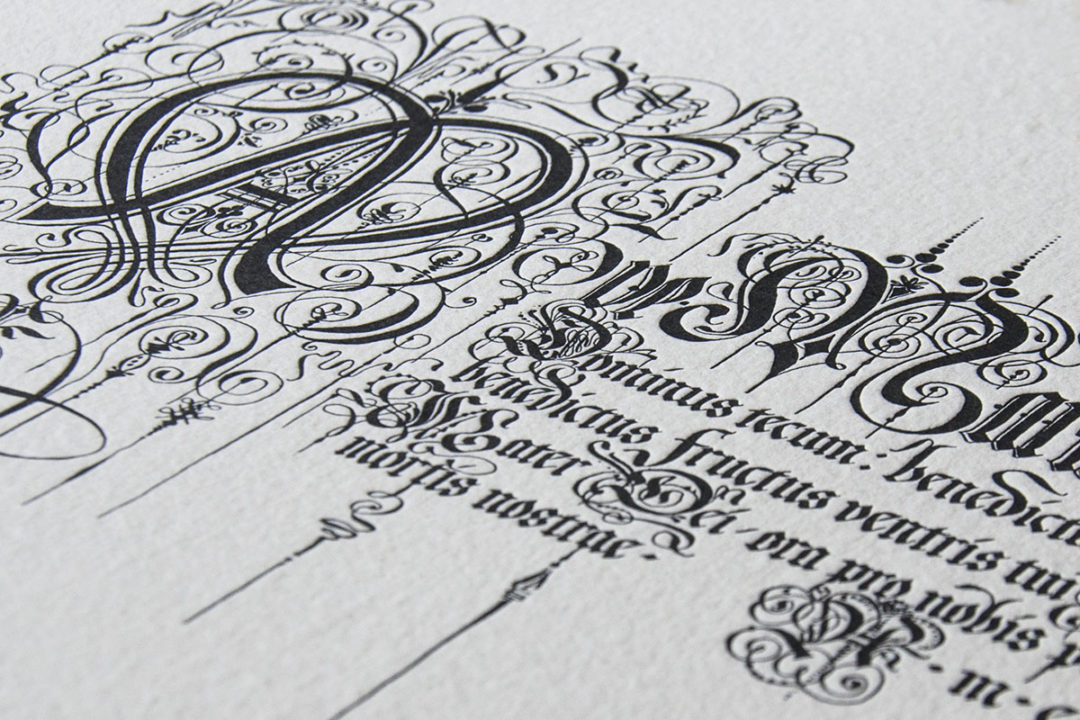 Ave. Mar
Dominus tecum: benedict
benedictus fructus ventris tui
Mater Dei, ora pro nobis
mortis nostrae.
A·m·e